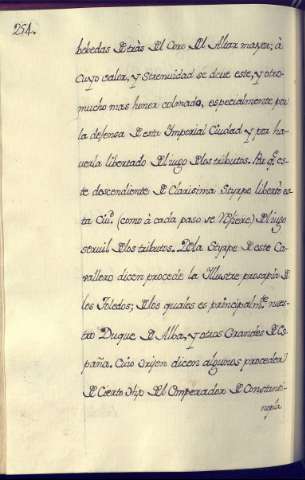 254.
bobedas Detràs Del Coro Del Altar mayor; à
cuyo valor, y Strenuidad se deve este, y otro
mucho mas honor colmado, especialmente por
la defensa De esta Imperial Ciudad y por ha-
verla libertado Del iugo De los tributos. Pòr q.e es-
te descendiente De Clarisima Styrpe libertò es-
ta Ciu.d (como à cada paso se refiere) Del iugo
servil De los tributos. De la Styrpe De este Ca-
vallero dicen procede la Illustre prosapia De
los Toledos; De los quales es principalm.te nues-
tro Duque De Alba, y otros Grandes De Es-
paña. Cuio orijen dicen algunos proceder
De Cierto Hijo Del Emperador De Constanti-
nopla